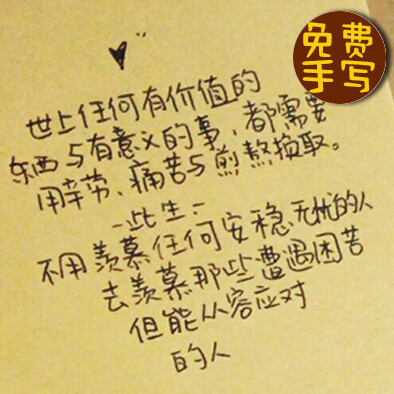 免费
手写
世上任何有价值的
东西与有意义的事，都需要
用辛劳、痛苦与煎熬换取。
一此生：
不用羡慕任何安稳、无忧的人
去羡慕那些遭遇困苦
但能从容应对
的人